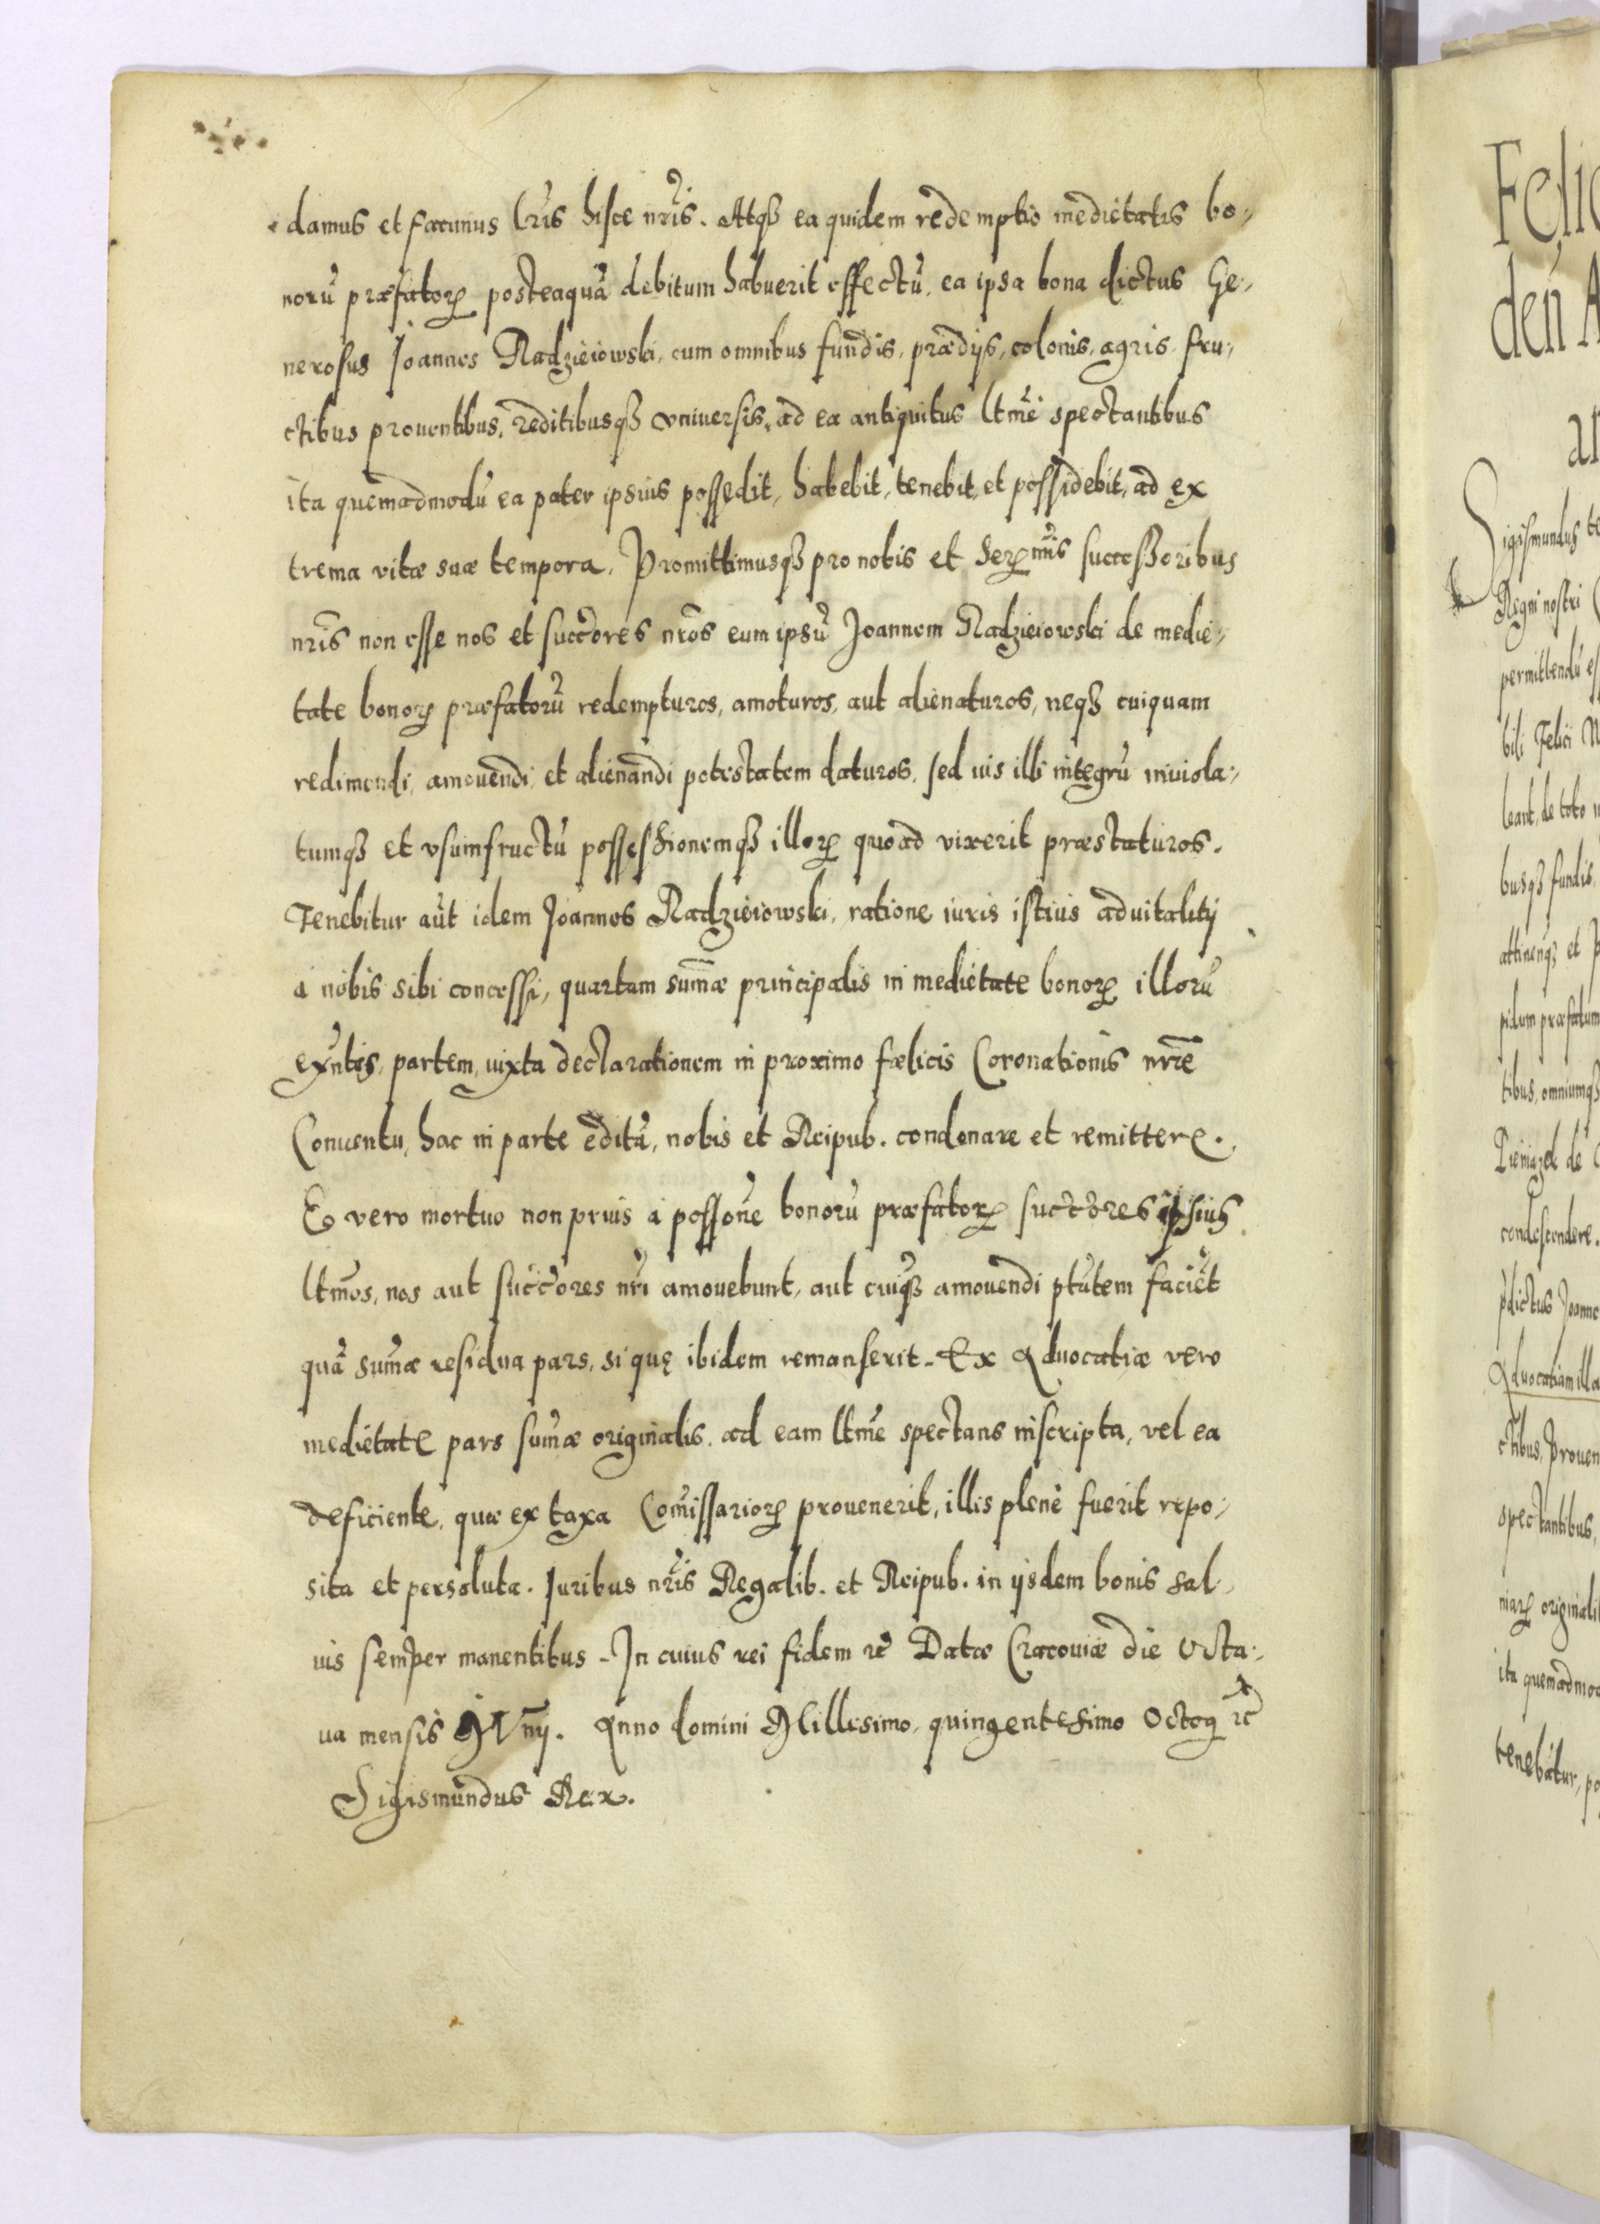 damus et facimus lr̃is hisce nr̃is. Atqꝫ ea quidem redemptio medietatis bo-
norũ præfatorꝝ posteaquã debitum habuerit effectũ, ea ipsa bona dictus Ge-
nerosus Joannes Radzieiowski, cum omnibus fundis, prædijs, colonis, agris, fru-
ctibus prouentibus, reditibusqꝫ vniuersis, ad ea antiquitus ltm̃e spectantibus
ita quemadmodũ ea pater ipsius possedit, habebit, tenebit, et possidebit, ad ex
trema vitæ suæ tempora. Promittimusqꝫ pro nobis et Serꝝmis successoribus
nr̃is non esse nos et succ̃ores nr̃os eum ipsũ Joannem Radzieiowski de medie-
tate bonorꝝ præfatorũ redempturos, amoturos, aut alienaturos, neqꝫ cuiquam
redimendi, amouendi, et alienandi potestatem daturos, sed ius illi integrũ inuiola-
tumqꝫ et vsumfructũ possessionemqꝫ illorꝝ quoad vixerit præstaturos.
Tenebitur aũt idem Joannes Radzieiowski, ratione iuris istius aduitalitij
a nobis sibi concessi, quartam sum̃æ principalis in medietate bonorꝝ illorũ
exñtis, partem, iuxta declarationem in proximo fælicis Coronationis nr̃æ
Conuentu, hac in parte editã, nobis et Reipub. condonare et remittere.
Eo vero mortuo non prius a possoñe bonorũ præfatorꝝ succ̃ores ipsius
ltm̃os, nos aut succ̃ores nr̃i amouebunt, aut cuiqꝫ amouendi ptãtem faciẽt
quã sum̃æ residua pars, si quę ibidem remanserit. Ex Aduocatiæ vero
medietate pars sum̃æ originalis, ad eam ltm̃e spectans inscripta, vel ea
deficiente, quæ ex taxa Com̃issariorꝝ prouenerit, illis plenè fuerit repo-
sita et persoluta. Iuribus nr̃is Regalib. et Reipub. in ijsdem bonis sal-
uis semper manentibus. In cuius rei fidem ꝛc̃ Datæ Cracouiæ die Octa-
ua mensis Iunij. Anno domini Millesimo, quingentesimo Octog ꝛc̃
Sigismundus Rex.
Felic
den A
an
Sigismundus te
Regni nostri
permittendũ es
bili Felici
leant, de toto
busqꝫ fundis,
attinenqꝫ et
pidum præfatum
tibus, omniumqꝫ
Pieniązek de
condescendere.
p̃dictus Joanne
Aduocatiam illa
ctibus, prouen
spectantibus,
niarꝝ originali
ita quemadmo
tenebatur, po